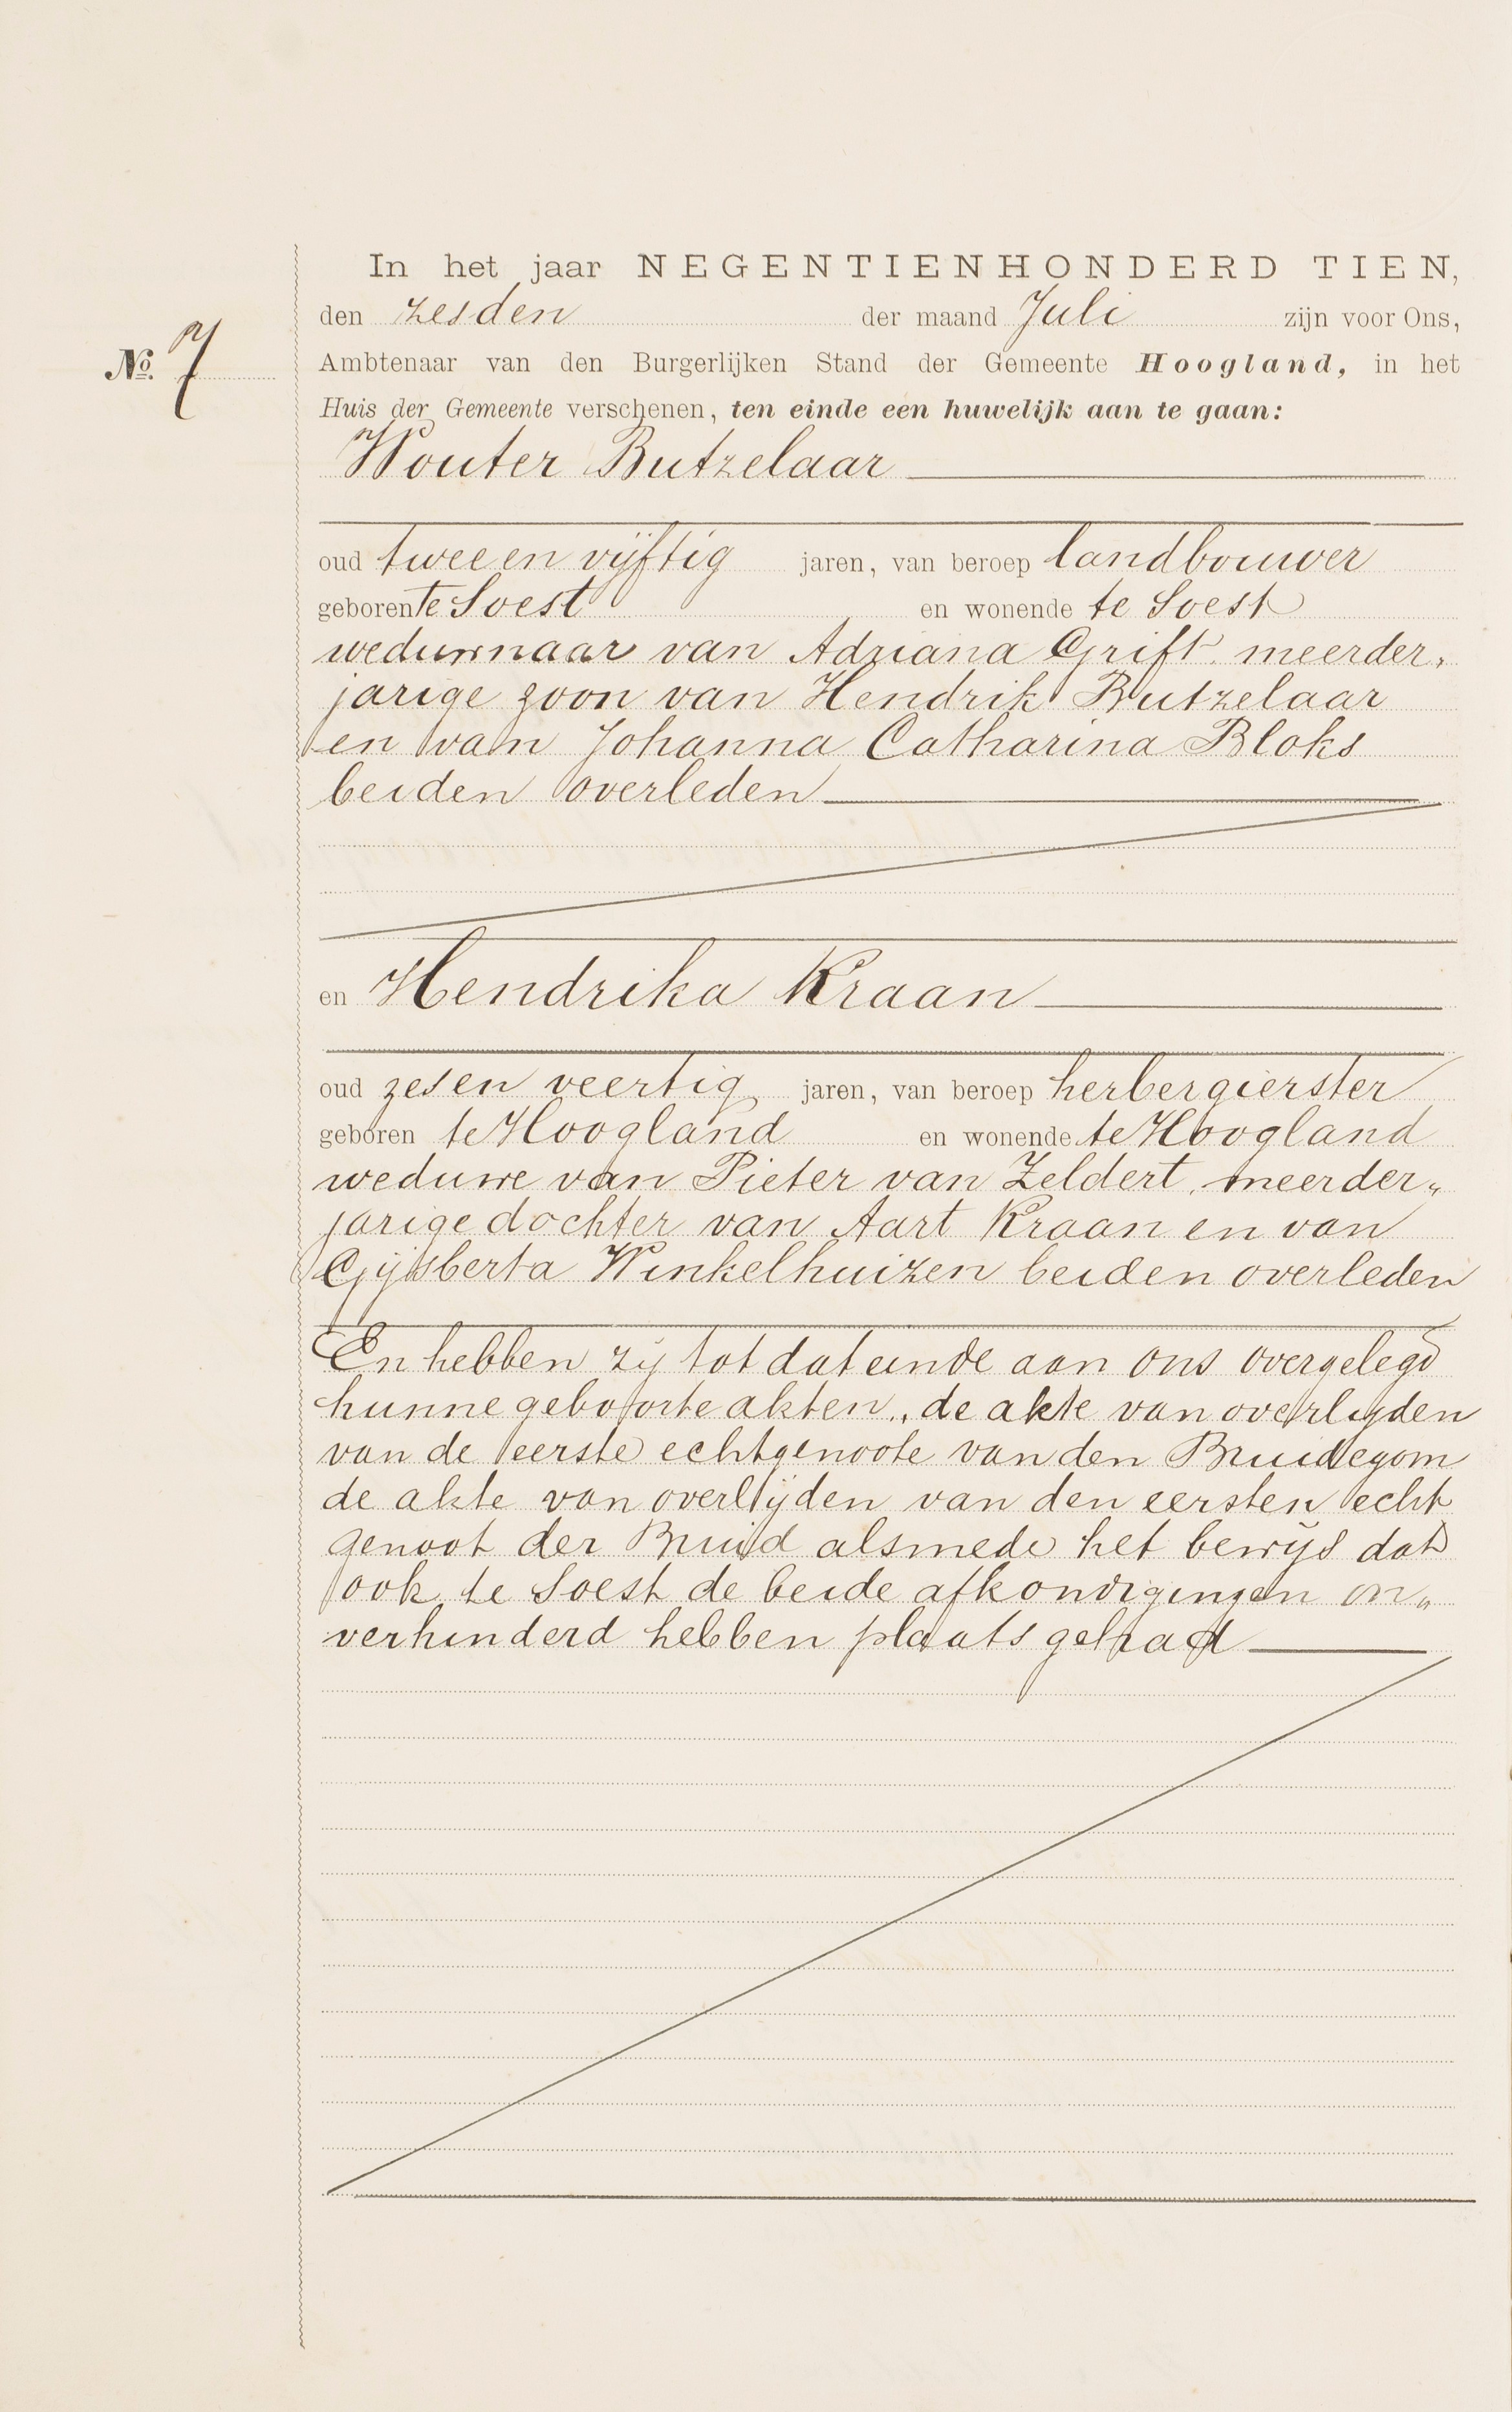 In het jaar NEGENTIENHONDERD TIEN,
den zesden der maand Juli zijn voor Ons,
No. 7
Ambtenaar van den Burgerlijken Stand der Gemeente Hoogland, in het
Huis der Gemeente verschenen, ten einde een huwelijk aan te gaan:
Wouter Butzelaar
oud twee en vijftig jaren, van beroep landbouwer
geboren te Soest en wonende te Soest
weduwnaar van Adriana Grift meerder„
jarige zoon van Hendrik Butzelaar
en van Johanna Catharina Bloks
beiden overleden
en Hendrika Kraan
oud zes en veertig jaren, van beroep herbergierster
geboren te Hoogland en wonende te Hoogland
weduwe van Pieter van Zeldert, meerder„
jarige dochter van Aart Kraan en van
Gijsberta Winkelhuizen beiden overleden
En hebben zij tot dat einde aan ons overgelegd
hunne geboorte akten, de akte van overlijden
van de eerste echtgenoote van den Bruidegom
de akte van overlijden van den eersten echt
genoot der Bruid alsmede het bewijs dat
ook te Soest de beide afkondigingen on„
verhinderd hebben plaats gehad